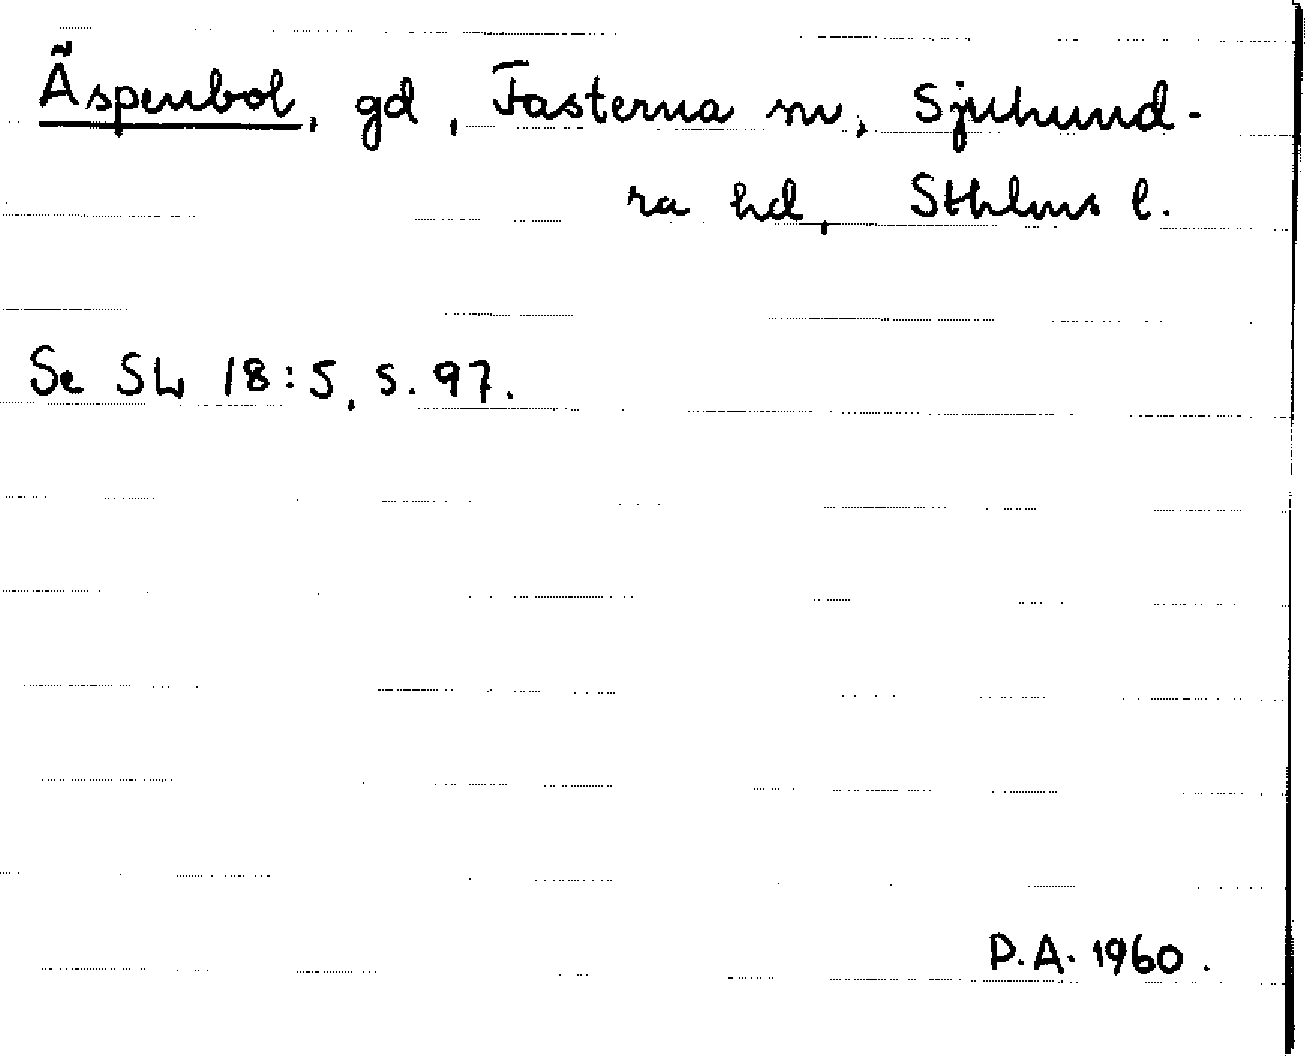 Äspenbol, gd, Fasterna sn, Sjuhund-
ra hd, Sthlms l.
Se SL 18:5, s. 97.
P.A. 1960.